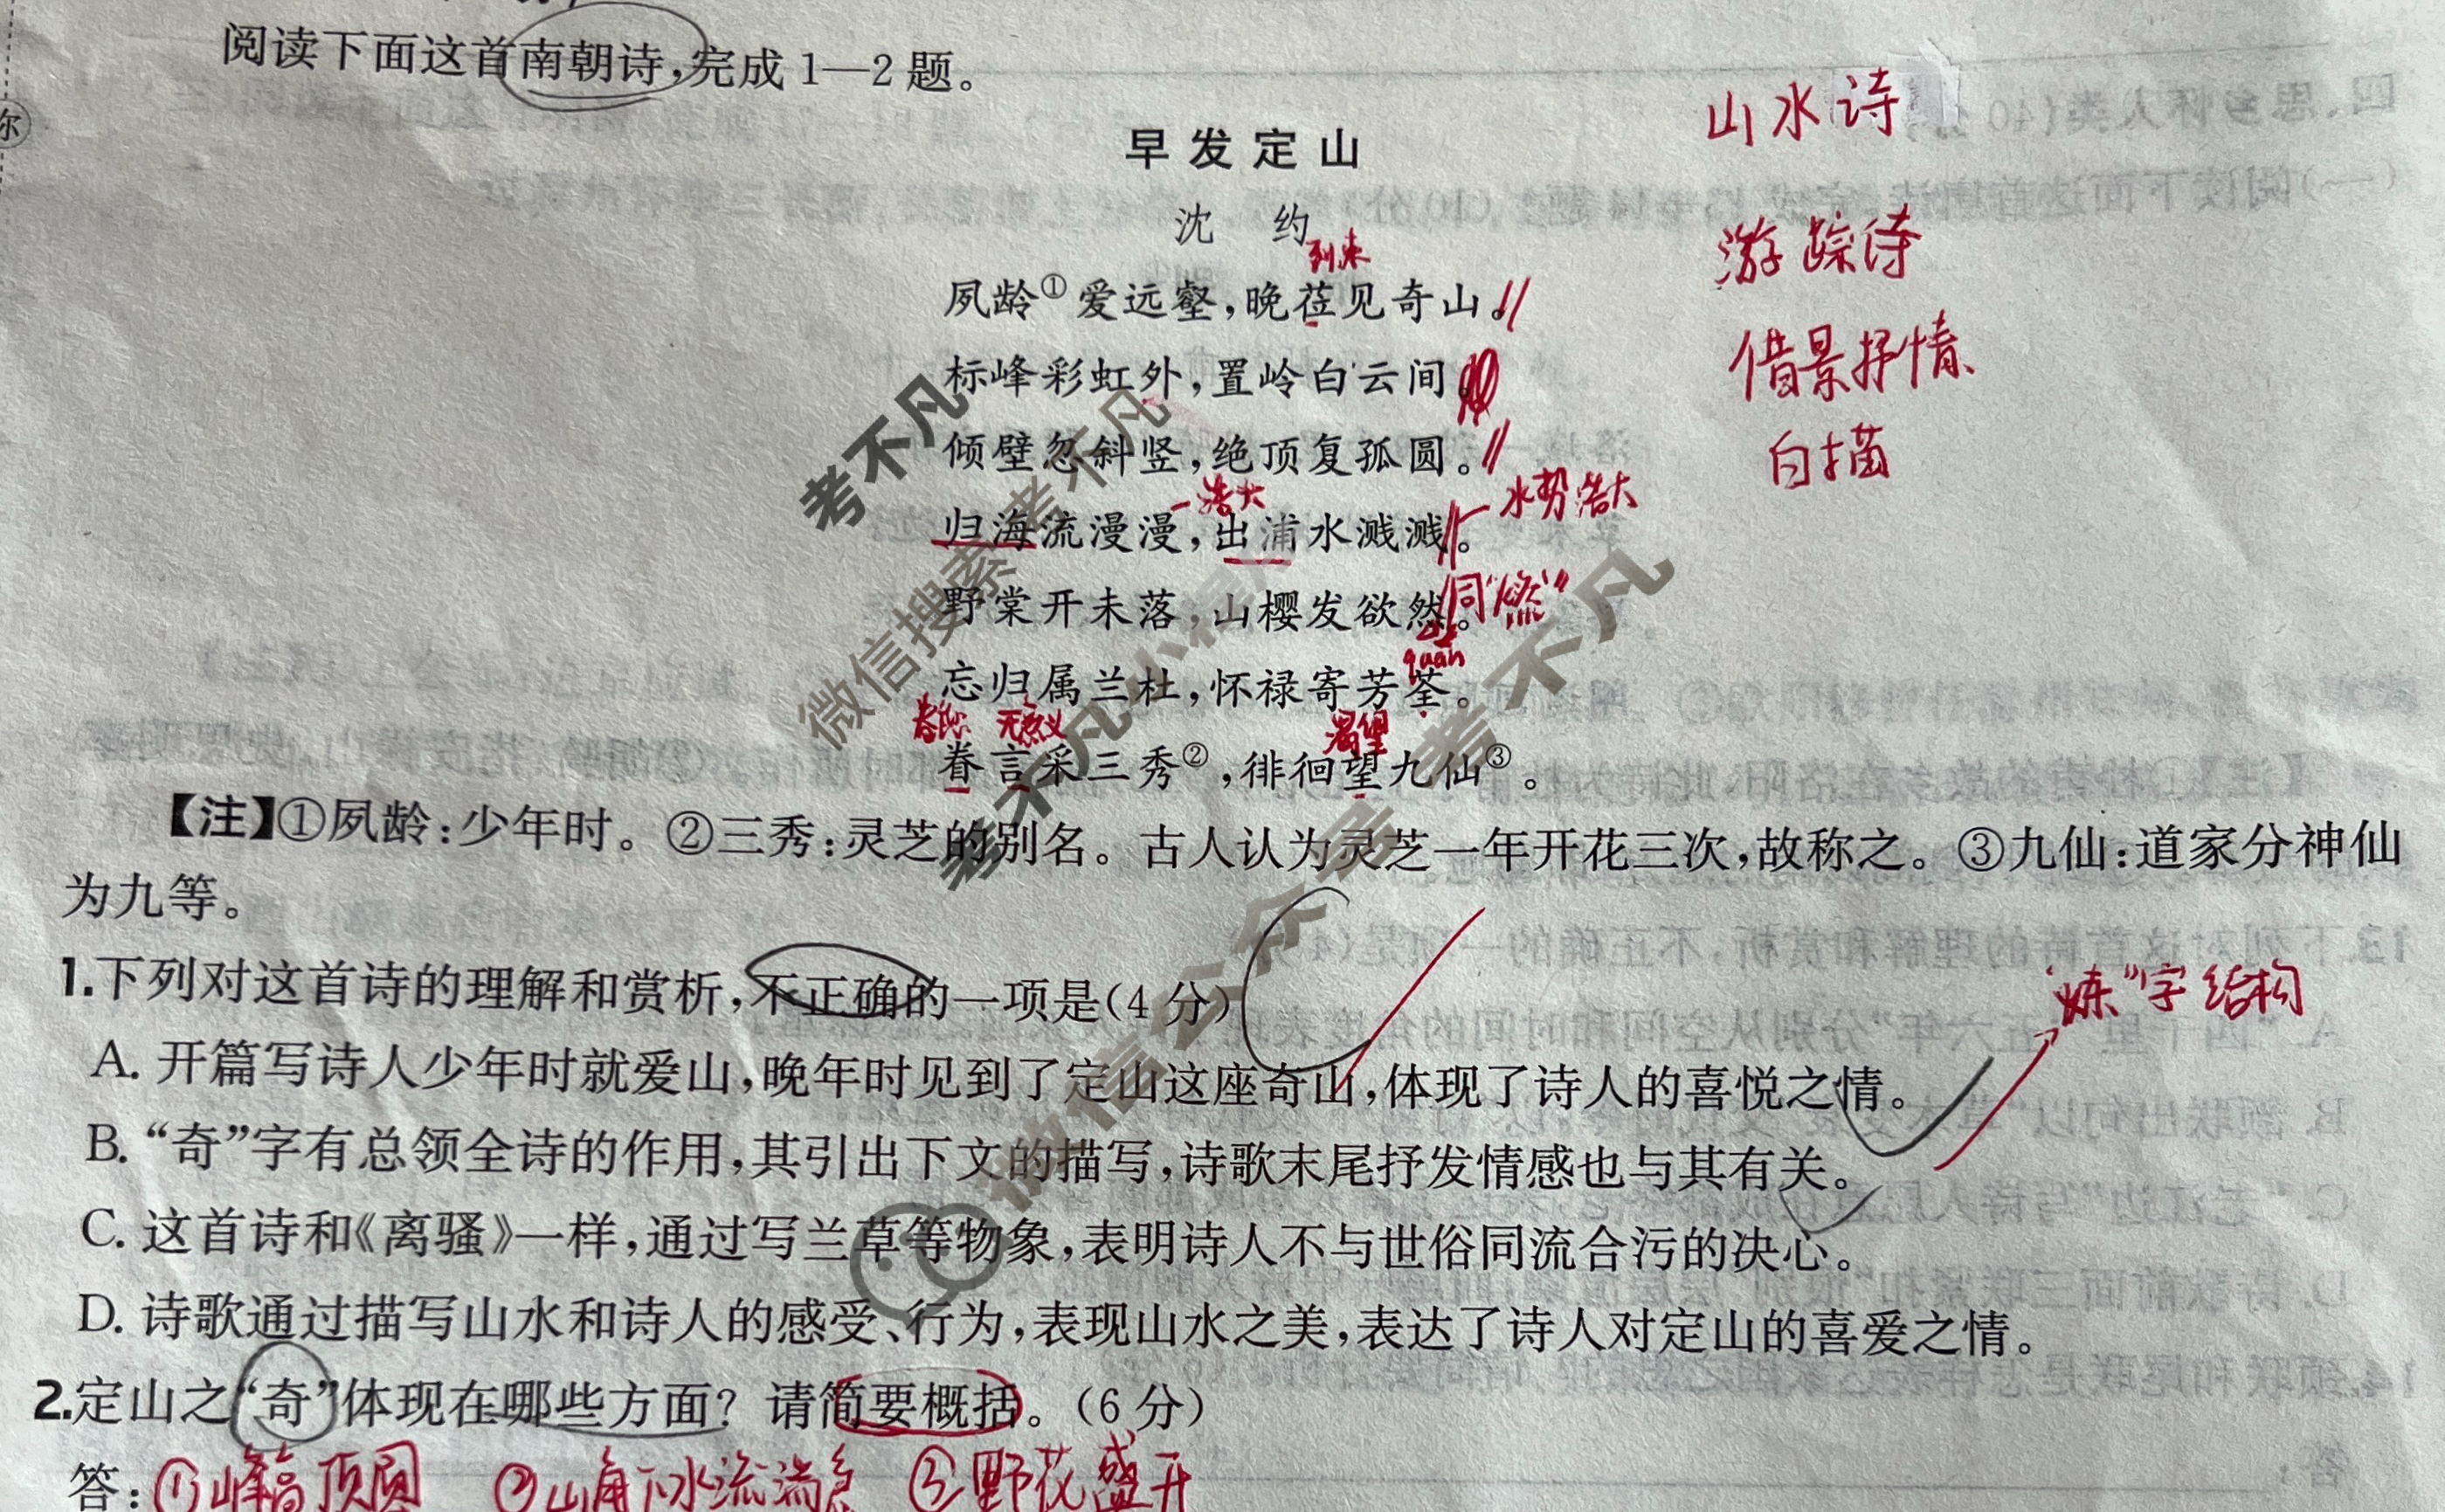 阅读下面这首南朝诗,完成1—2题。
山水诗
早发定山
沈 约
游踪诗
到来
夙龄①爱远壑,晚莅见奇山。
借景抒情
标峰彩虹外,置岭白云间。
白描
倾壁忽斜竖,绝顶复孤圆。
浩大
水势浩大
归海流漫漫,出浦水溅溅。
同“燃”
野棠开未落,山樱发欲然。
quán
忘归属兰杜,怀禄寄芳荃。
眷恋 无意义 渴望
眷言采三秀②,徘徊望九仙③。
【注】①夙龄:少年时。②三秀:灵芝的别名。古人认为灵芝一年开花三次,故称之。③九仙:道家分神仙
为九等。
1.下列对这首诗的理解和赏析,不正确的一项是(4分)
“炼”字 结构
A. 开篇写诗人少年时就爱山,晚年时见到了定山这座奇山,体现了诗人的喜悦之情。
B. “奇”字有总领全诗的作用,其引出下文的描写,诗歌末尾抒发情感也与其有关。
C. 这首诗和《离骚》一样,通过写兰草等物象,表明诗人不与世俗同流合污的决心。
D. 诗歌通过描写山水和诗人的感受、行为,表现山水之美,表达了诗人对定山的喜爱之情。
2.定山之“奇”体现在哪些方面?请简要概括。(6分)
答:①峰高顶圆 ②山角下水流湍急 ③野花盛开
考不凡
微信搜索 考不凡
考不凡
微信公众号 考不凡